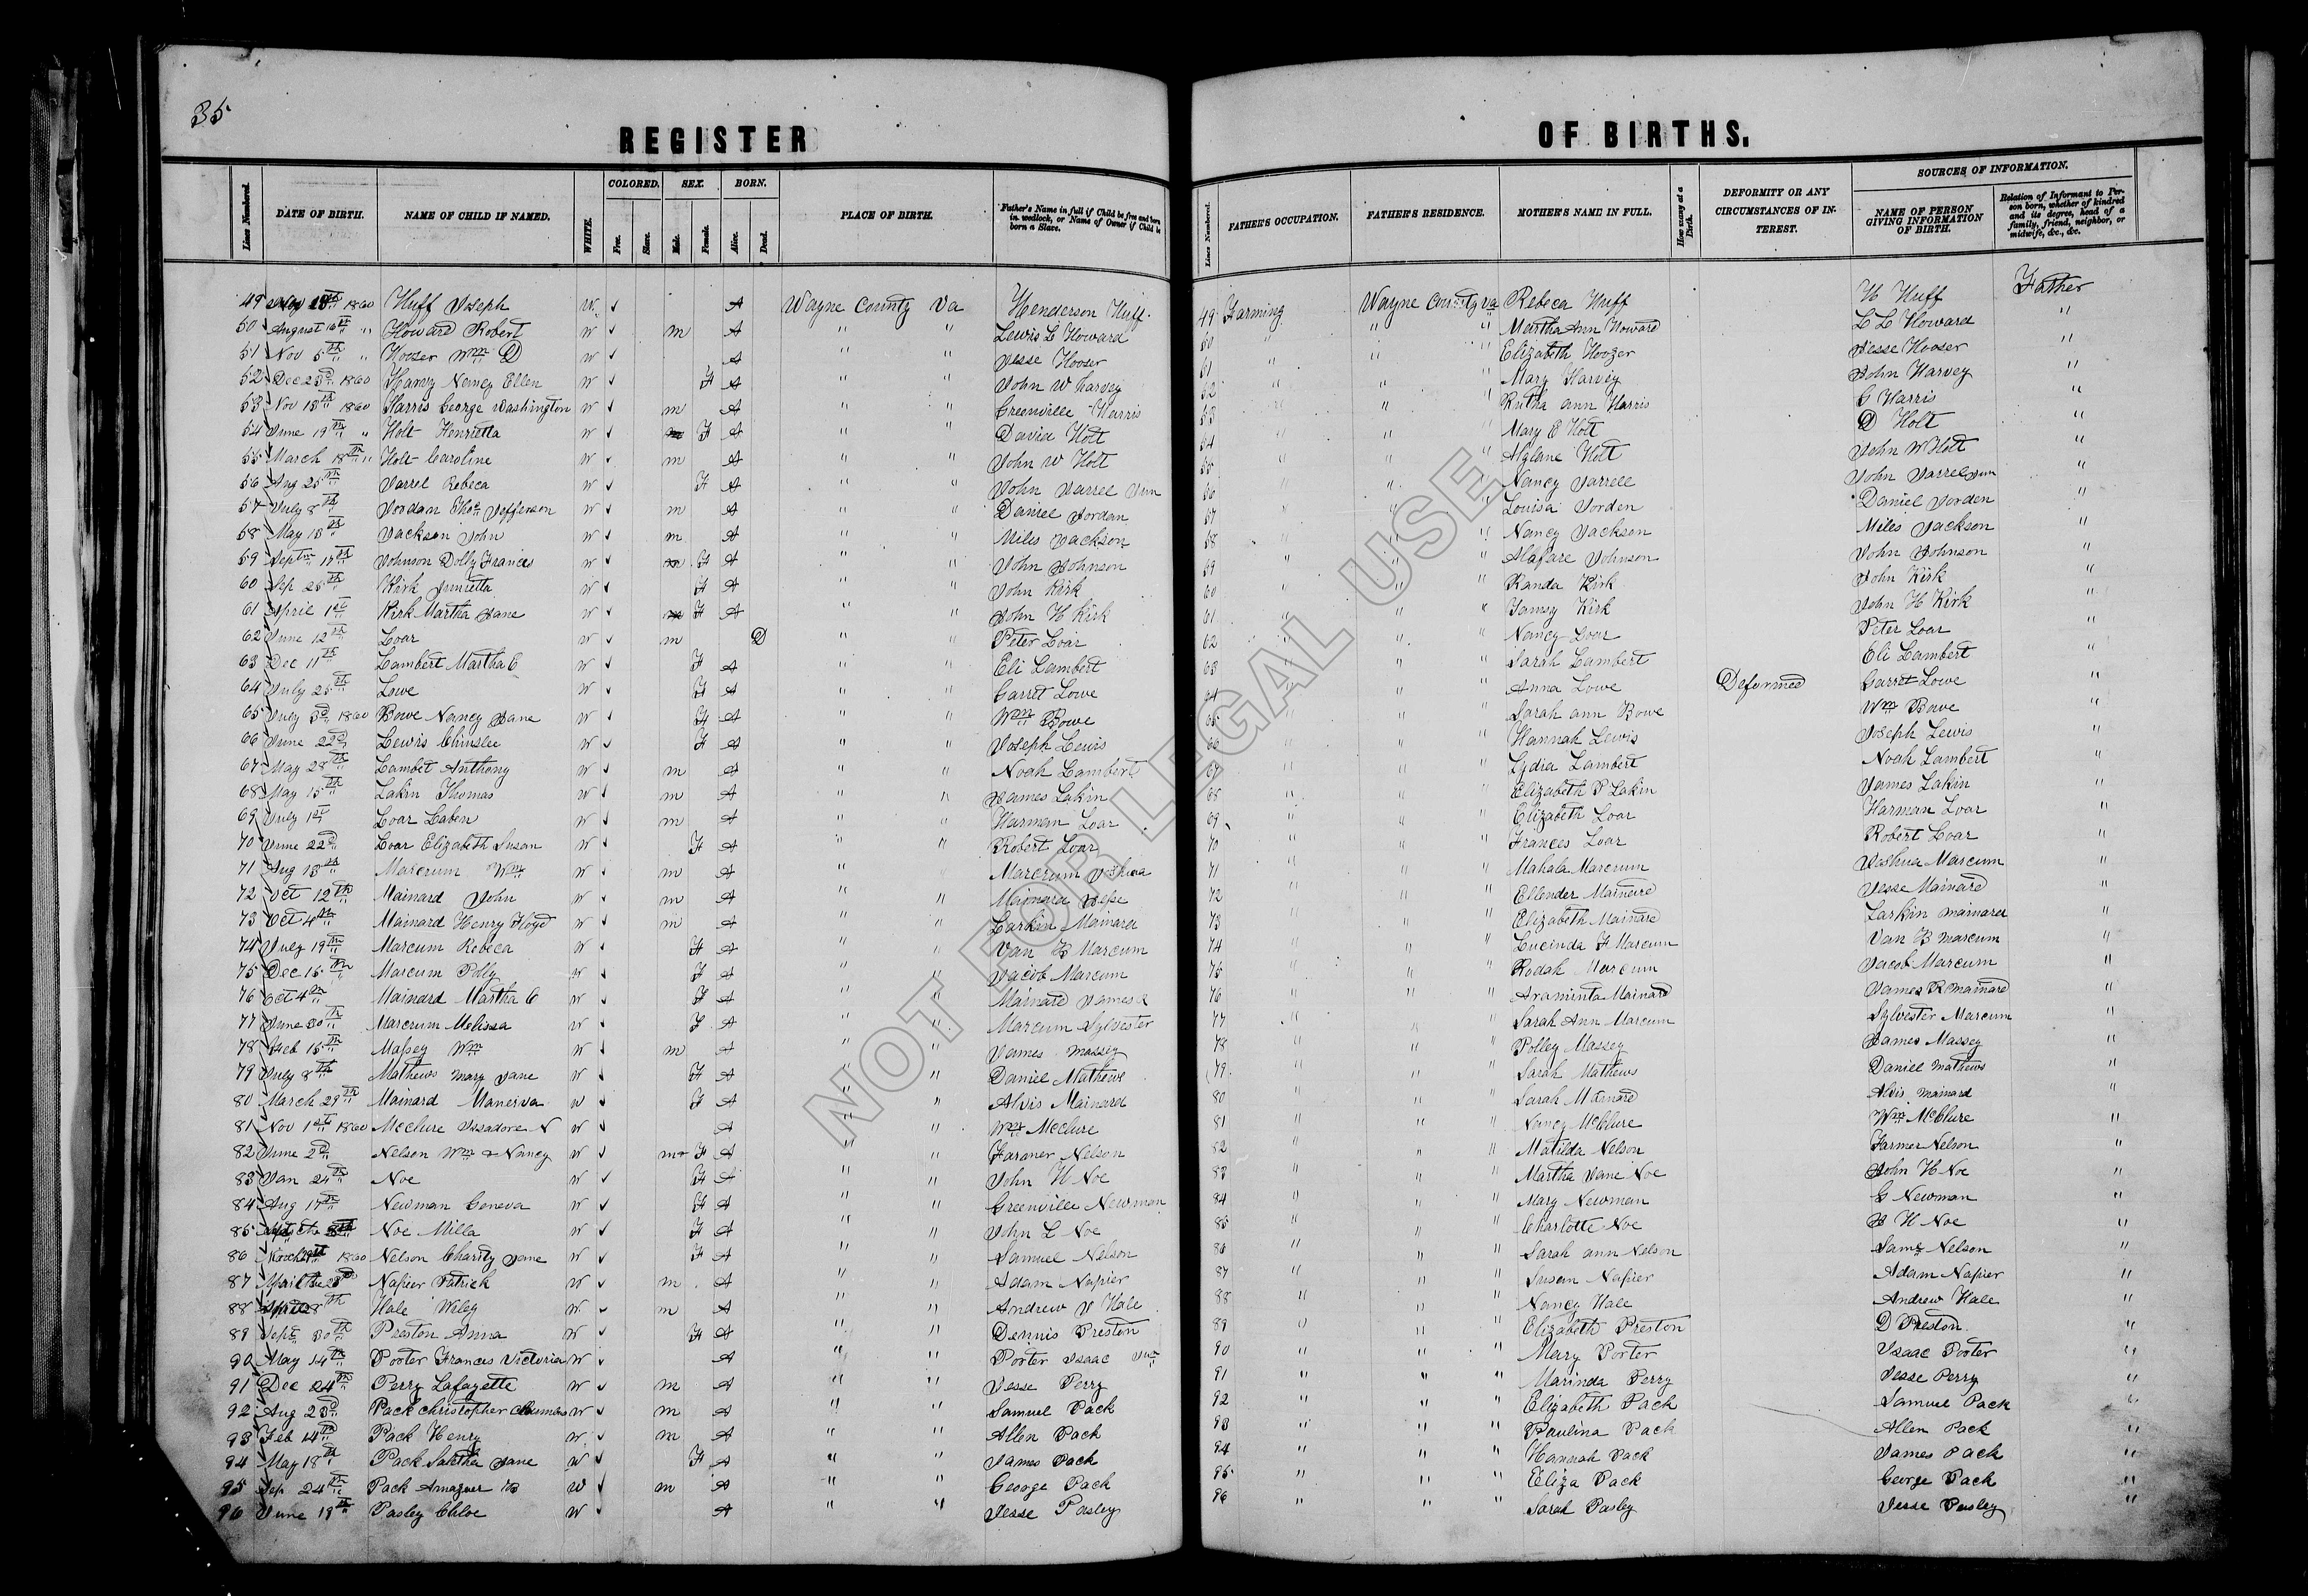 35
REGISTER OF BIRTHS.
Lines Numbered. DATE OF BIRTH. NAME OF CHILD IF NAMED. WHITE. COLORED. Free. Slave. SEX. Male. Female. BORN. Alive. Dead. PLACE OF BIRTH. Father's Name in full if Child be free and born in wedlock, or Name of Owner if Child be born a Slave. Lines Numbered. FATHER'S OCCUPATION. FATHER'S RESIDENCE. MOTHER'S NAME IN FULL. How many at a Birth. DEFORMITY OR ANY CIRCUMSTANCES OF INTEREST. SOURCES OF INFORMATION. NAME OF PERSON GIVING INFORMATION OF BIRTH. Relation of Informant to Person born, whether of kindred and its degree, head of a family, friend, neighbor, or midwife, &c., &c.
49 1860 Huff Joseph W ✓ A Wayne County Va Henderson Huff 49 Farming Wayne County Va Rebeca Huff H Huff Father
50 August 16th " Howard Robert W ✓ m A " " Lewis L Howard 50 " " " Martha Ann Howard L L Howard "
51 Nov 5th " Hoozer Wm D W ✓ A " " Jesse Hooser 51 " " " Elizabeth Hoozer Jesse Hooser "
52 Dec 23d 1860 Harvy Nancy Ellen W ✓ F A " " John W harvey 52 " " " Mary Harvey John Harvey "
53 Nov 13th 1860 Harris George Washington W ✓ m A " " Greenville Harris 53 " " " Rutha ann Harris G Harris "
54 June 19th " Holt Henrietta W ✓ F A " " David Holt 54 " " " Mary E Holt D Holt "
55 March 18th " Holt Caroline W ✓ m A " " John W Holt 55 " " " Holt John W Holt "
56 Aug 25th Jarrel Rebeca W ✓ F A " " John Jarrel Jun 56 " " " Nancy Jarrell John Jarrel Jun "
57 July 8th Jordan Thos Jefferson W ✓ m A " " Daniel Jordan 57 " " " Louisa Jorden Daniel Jorden "
58 May 13th Jackson John W ✓ m A " " Miles Jackson 58 " " " Nancy Jackson Miles Jackson "
59 Sept 17th Johnson Dolly Frances W ✓ F A " " John Johnson 59 " " " Alafare Johnson John Johnson "
60 Sep 25th Kirk Junietta W ✓ F A " " John Kirk 60 " " " Kanda Kirk John Kirk "
61 April 1st Kirk Martha Jane W ✓ F A " " John H Kirk 61 " " " Kirk John H Kirk "
62 June 12th Loar W ✓ m D " " Peter Loar 62 " " " Nancy Loar Peter Loar "
63 Dec 11th Lambert Martha C W ✓ F A " " Eli Lambert 63 " " " Sarah Lambert Eli Lambert "
64 July 25th Lowe W ✓ F A " " Garret Lowe 64 " " " Anna Lowe Deformed Garret Lowe "
65 July 3d 1860 Bowe Nancy Jane W ✓ F A " " Wm Bowe 65 " " " Sarah ann Bowe Wm Bowe "
66 June 22d Lewis Chinslee W ✓ F A " " Joseph Lewis 66 " " " Hannah Lewis Joseph Lewis "
67 May 28th Lambet Anthony W ✓ m A " " Noah Lambert 67 " " " Lydia Lambert Noah Lambert "
68 May 15th Lakin Thomas W ✓ m A " " James Lakin 68 " " " Elizabeth P Lakin James Lakin "
69 July 1st Loar Laben W ✓ m A " " Harman Loar 69 " " " Elizabeth Loar Harman Loar "
70 June 22d Loar Elizabeth Susan W ✓ F A " " Robert Loar 70 " " " Frances Loar Robert Loar "
71 Aug 13th Marcrum Wm W ✓ m A " " Marcrum Joshua 71 " " " Mahala Marcum Joshua Marcum "
72 Oct 12th Mainard John W ✓ m A " " Mainard Jesse 72 " " " Ellender Mainard Jesse Mainard "
73 Oct 4th Mainard Henry Floyd W ✓ m A " " Larkin Mainard 73 " " " Elizabeth Mainard Larkin mainard "
74 July 19th Marcum Rebeca W ✓ F A " " Van B Marcum 74 " " " Lucinda F Marcum Van B marcum "
75 Dec 15th Marcum Polly W ✓ F A " " Jacob Marcum 75 " " " Rodah Marcum Jacob Marcum "
76 Oct 4th Mainard Martha C W ✓ F A " " Mainard James R 76 " " " Araminta Mainard James R mainard "
77 June 30th Marcum Melissa W ✓ F A " " Marcum Sylvester 77 " " " Sarah Ann Marcum Sylvester Marcum "
78 Feb 15th Massey Wm W ✓ m A " " James massey 78 " " " Polley Massey James Massey "
79 July 8th Mathews mary Jane W ✓ F A " " Daniel Mathews 79 " " " Sarah Mathews Daniel mathews "
80 March 29th Mainard Manerva W ✓ F A " " Alvis Mainard 80 " " " Sarah Mainard Alvis mainard "
81 Nov 1st 1860 McClure Issadore N W ✓ A " " Wm McClure 81 " " " Nancy McClure Wm McClure "
82 June 2d Nelson Wm & Nancy W ✓ m+ F A " " Farmer Nelson 82 " " " Matilda Nelson Farmer Nelson "
83 Jan 24th Noe W ✓ F A " " John H Noe 83 " " " Martha Jane Noe John H Noe "
84 Aug 17th Newman Geneva W ✓ F A " " Greenville Newman 84 " " " Mary Newman G Newman "
85 Noe Milla W ✓ F A " " John L Noe 85 " " " Charlotte Noe H Noe "
86 1860 Nelson Charity Jane W ✓ F A " " Samuel Nelson 86 " " " Sarah ann Nelson Saml Nelson "
87 April the 23d Napier Patrick W ✓ m A " " Adam Napier 87 " " " Susan Napier Adam Napier "
88 Hale Wiley W ✓ m A " " Andrew J Hale 88 " " " Nancy Hale Andrew Hale "
89 Sept 30th Preston Anna W ✓ F A " " Dennis Preston 89 " " " Elizabeth Preston D Preston "
90 May 14th Porter Frances Victoria W ✓ A " " Porter Isaac Jun 90 " " " Mary Porter Isaac Porter "
91 Dec 24th Perry Lafayette W ✓ m A " " Jesse Perry 91 " " " Marinda Perry Jesse Perry "
92 Aug 23d Pack Christopher Columbus W ✓ m A " " Samuel Pack 92 " " " Elizabeth Pack Samuel Pack "
93 Feb 14th Pack Henry W ✓ m A " " Allen Pack 93 " " " Paulina Pack Allen Pack "
94 May 18th Pack Jane W ✓ F A " " James Pack 94 " " " Hannah Pack James Pack "
95 Sep 24th Pack W ✓ m A " " George Pack 95 " " " Eliza Pack George Pack "
96 June 19th Pasley Chloe W ✓ A " " Jesse Pasley 96 " " " Sarah Pasley Jesse Pasley "
NOT FOR LEGAL USE